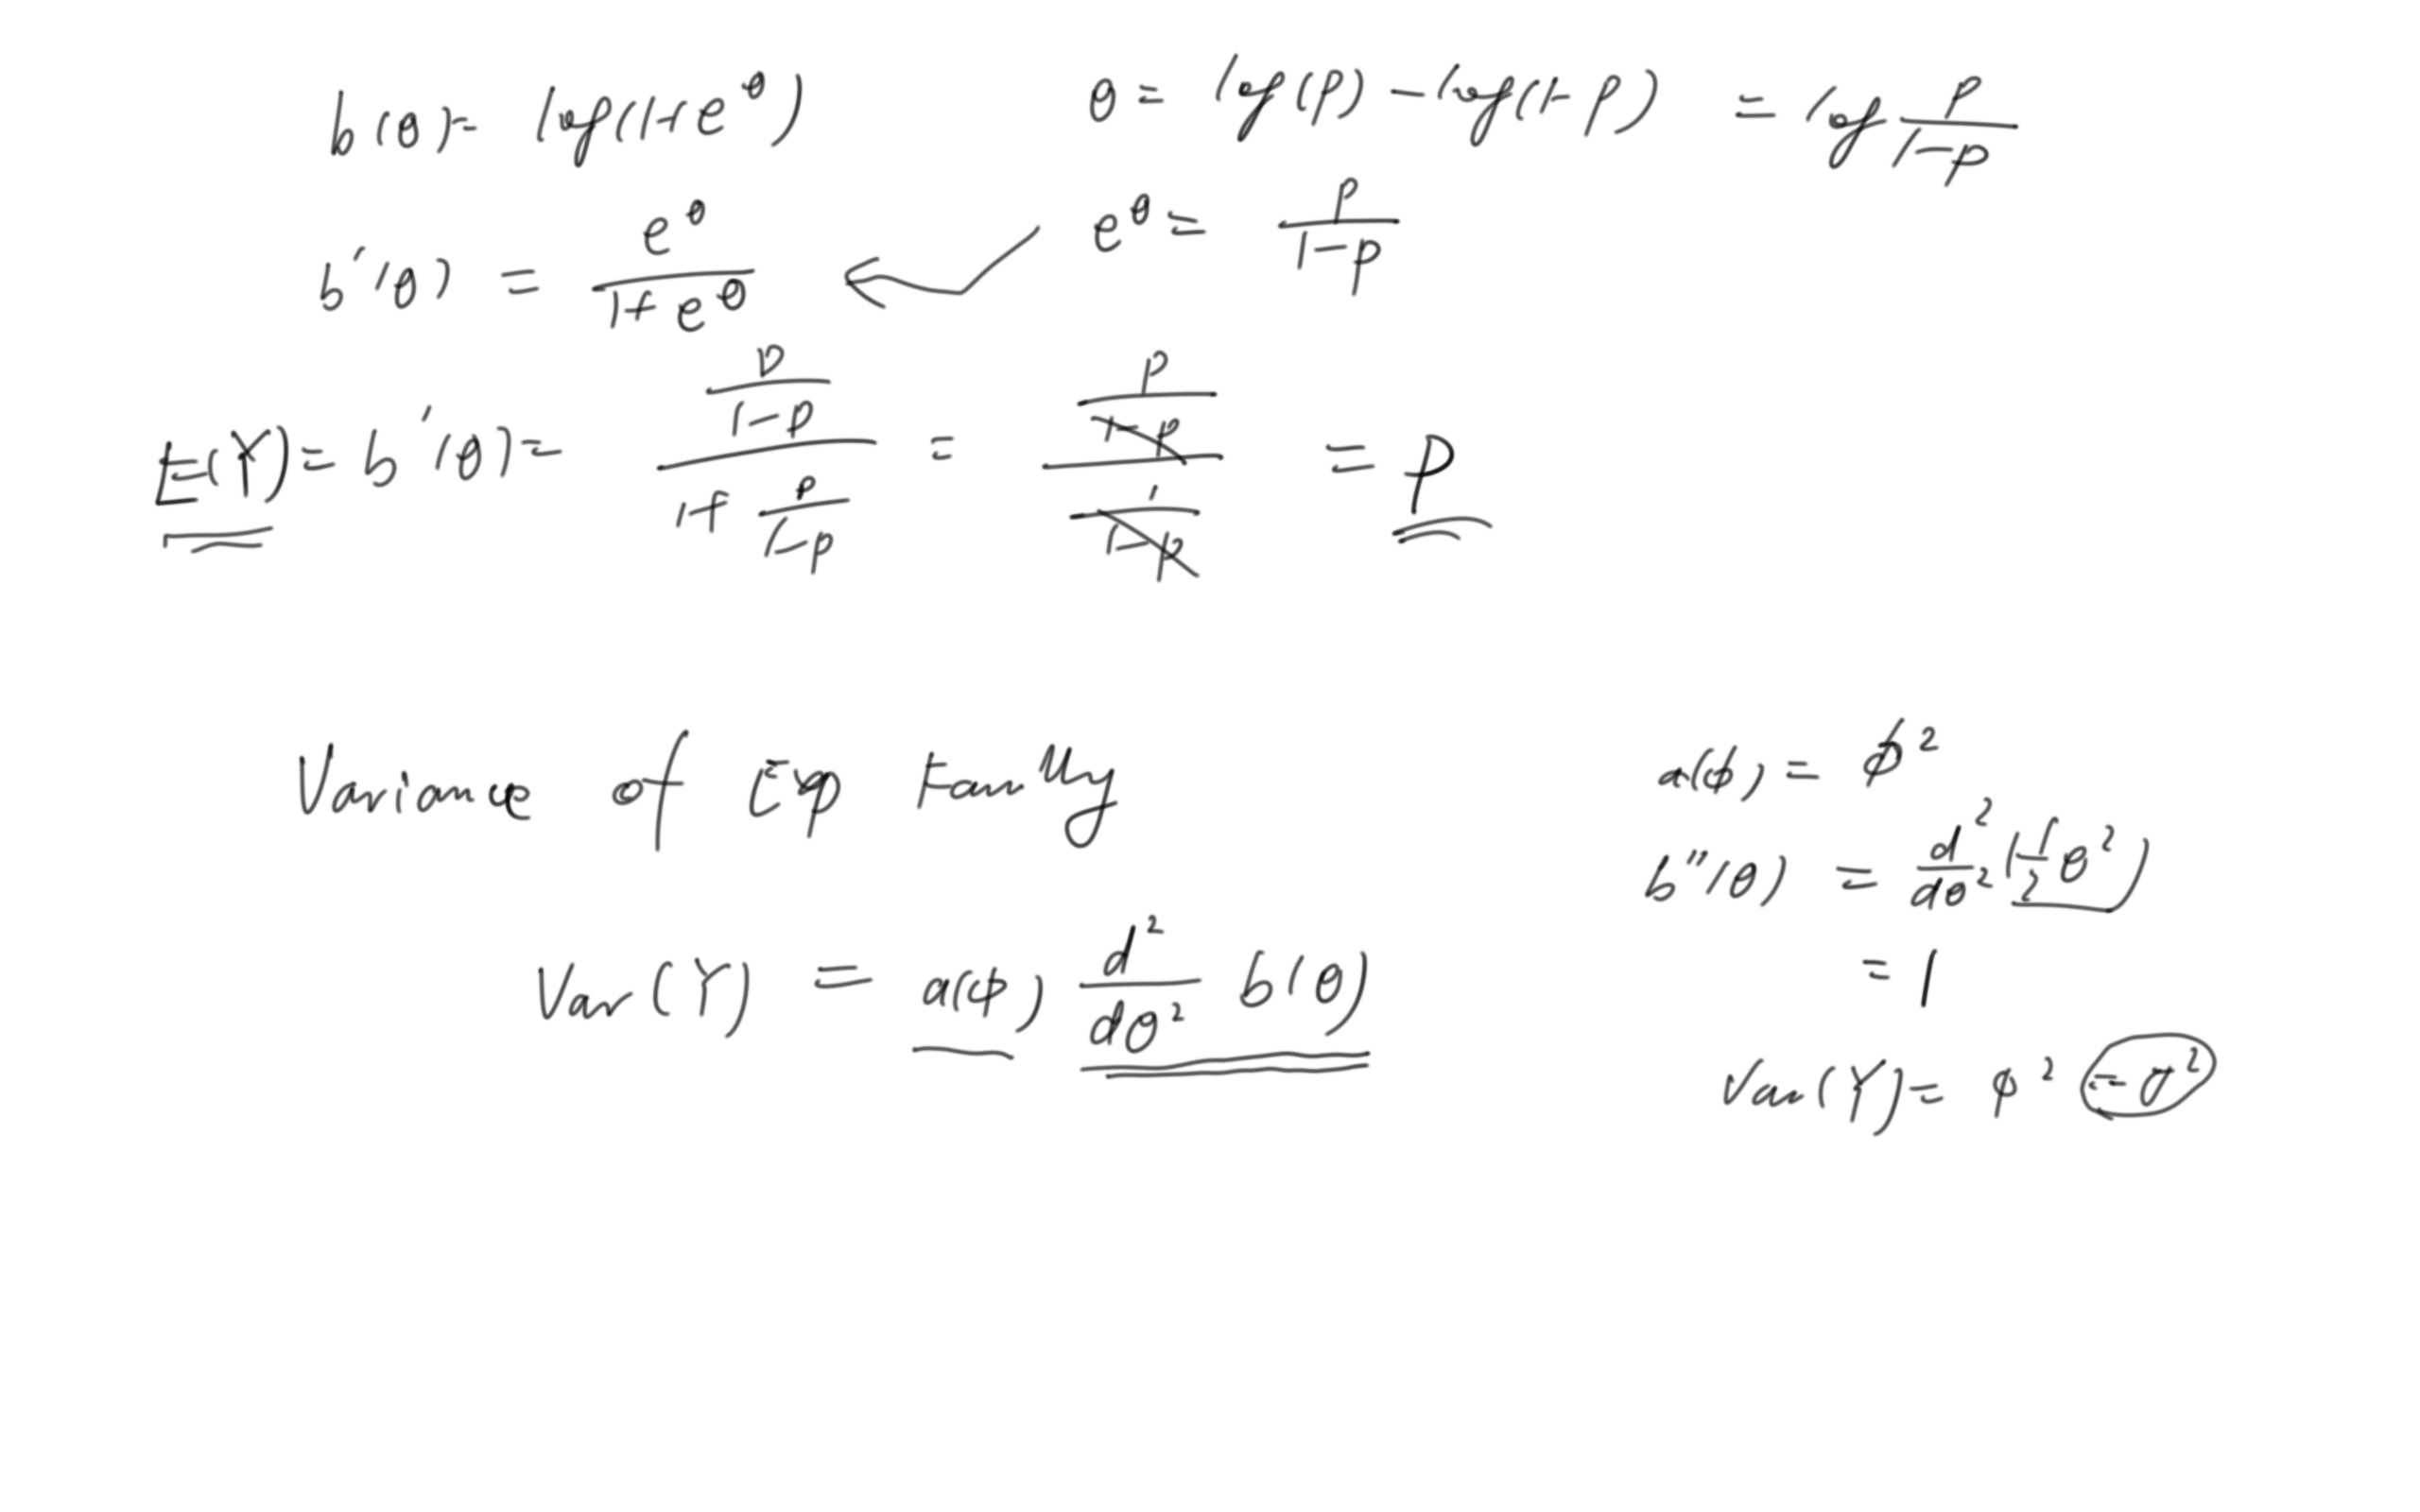 b(θ) = log(1+e^θ)
θ = log(p) - log(1-p) = log p/(1-p)
b'(θ) = e^θ/(1+e^θ)
e^θ = p/(1-p)
E(Y) = b'(θ) = (p/(1-p))/(1+p/(1-p)) = (p/(1-p))/(1/(1-p)) = p
Variance of Exp Family
Var(Y) = a(φ) d²/dθ² b(θ)
a(φ) = φ²
b''(θ) = d²/dθ² (1/2 θ²)
= 1
Var(Y) = φ² = σ²